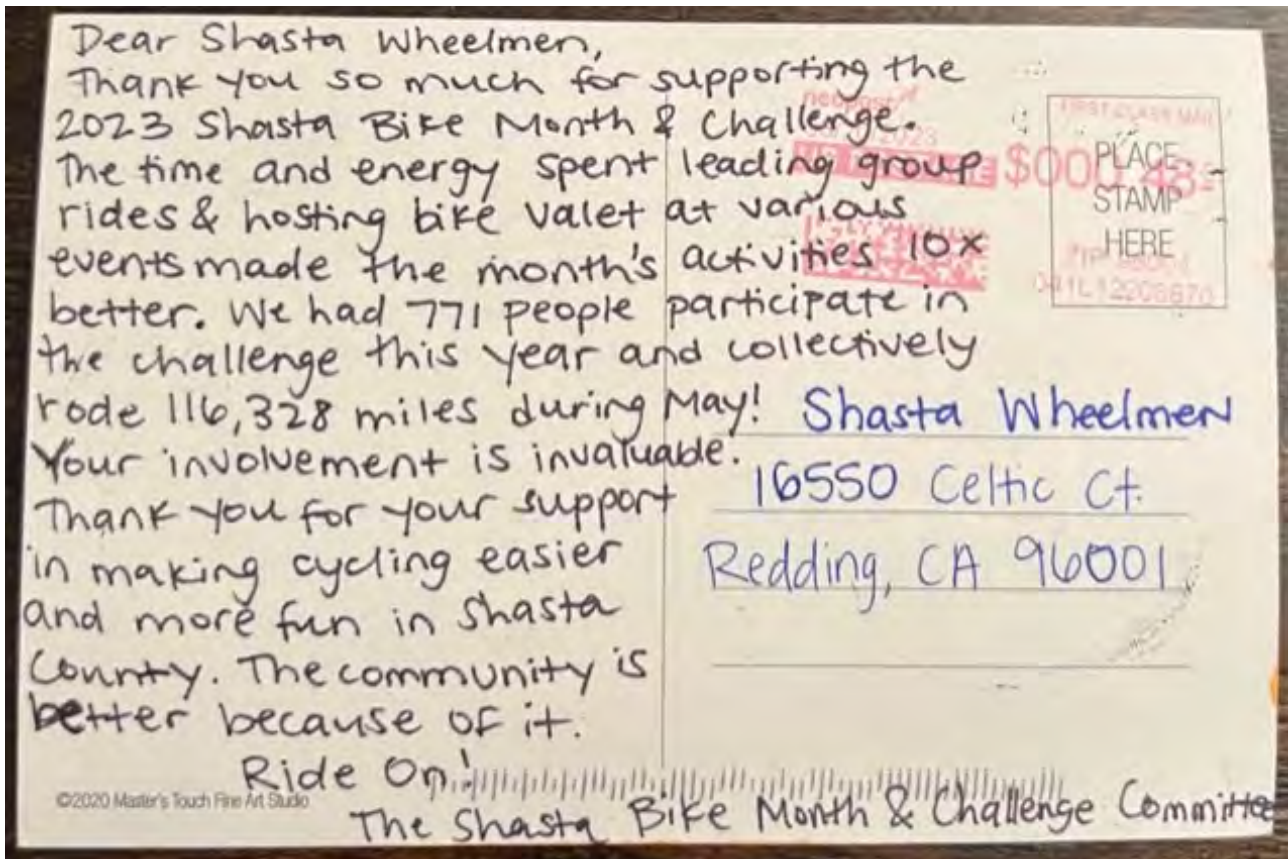 Dear Shasta Wheelmen,
Thank you so much for supporting the
2023 Shasta Bike Month & Challenge.
The time and energy spent leading group
rides & hosting bike valet at various
events made the month's activities 10x
better. We had 771 people participate in
the challenge this year and collectively
rode 116,328 miles during May!
Your involvement is invaluable.
Thank you for your support
in making cycling easier
and more fun in Shasta
County. The community is
better because of it.
Ride On!
The Shasta Bike Month & Challenge Committee
©2020 Master's Touch Fine Art Studio
neopost
FIRST-CLASS MAIL
PLACE
STAMP
HERE
Shasta Wheelmen
16550 Celtic Ct.
Redding, CA 96001